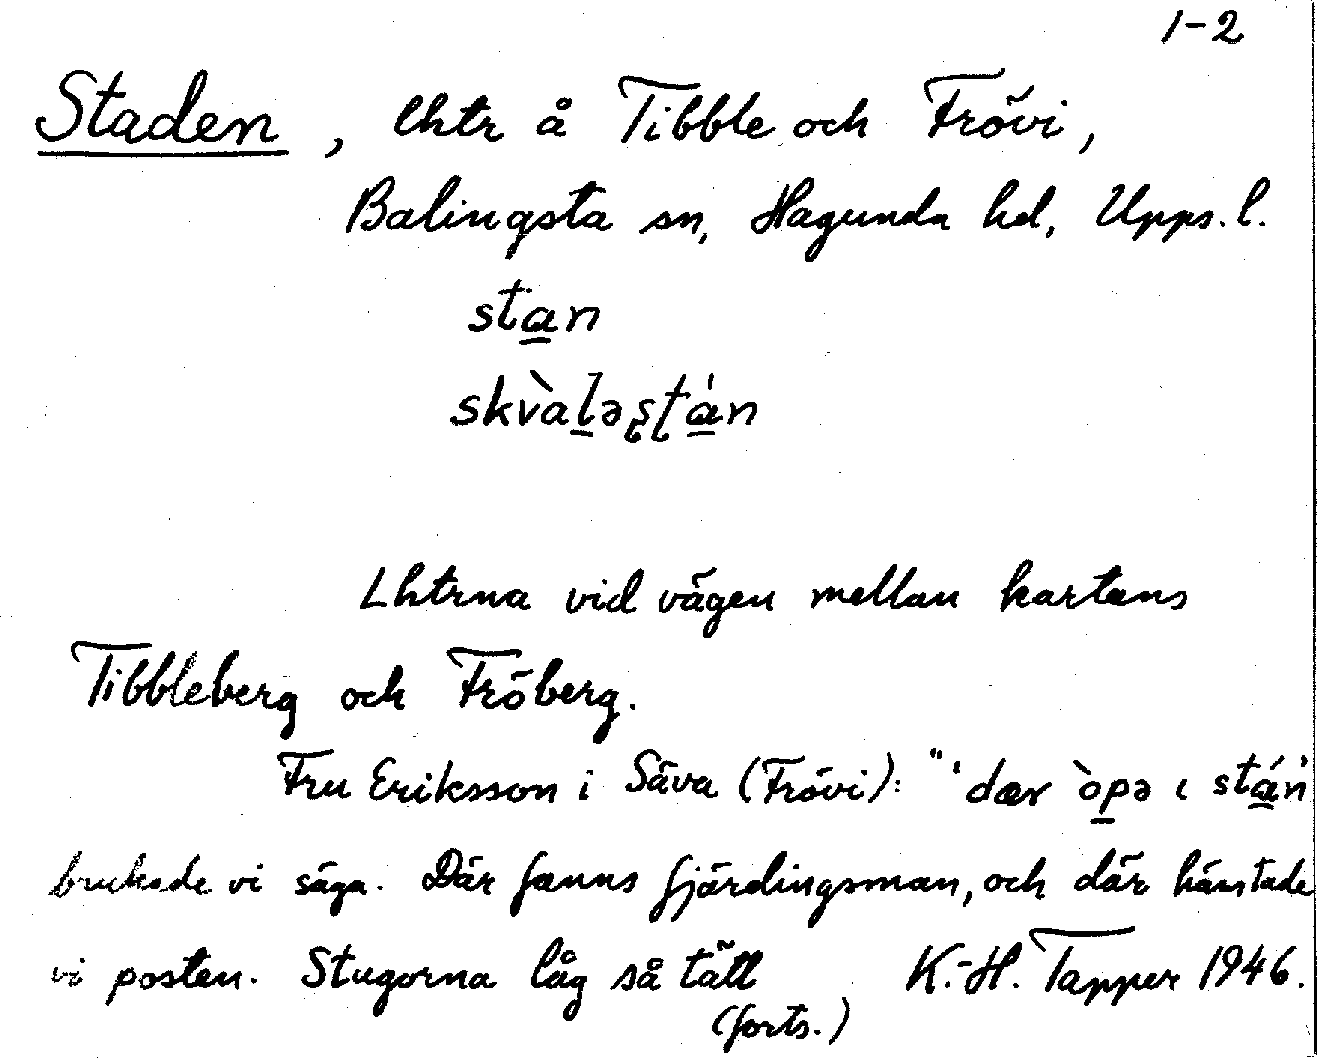 1-2
Staden, lhtr å Tibble och Frövi,
Balingsta sn, Hagunda hd, Upps. l.
stan
skv̀aləʂʈán
Lhtrna vid vägen mellan kartans
Tibbleberg och Fröberg.
Fru Eriksson i Säva (Frövi): "'dær òpə ɩ stán'
brukade vi säga. Där fanns fjärdingsman, och där hämtade
vi posten. Stugorna låg så tätt K.-H. Tapper 1946.
(forts.)